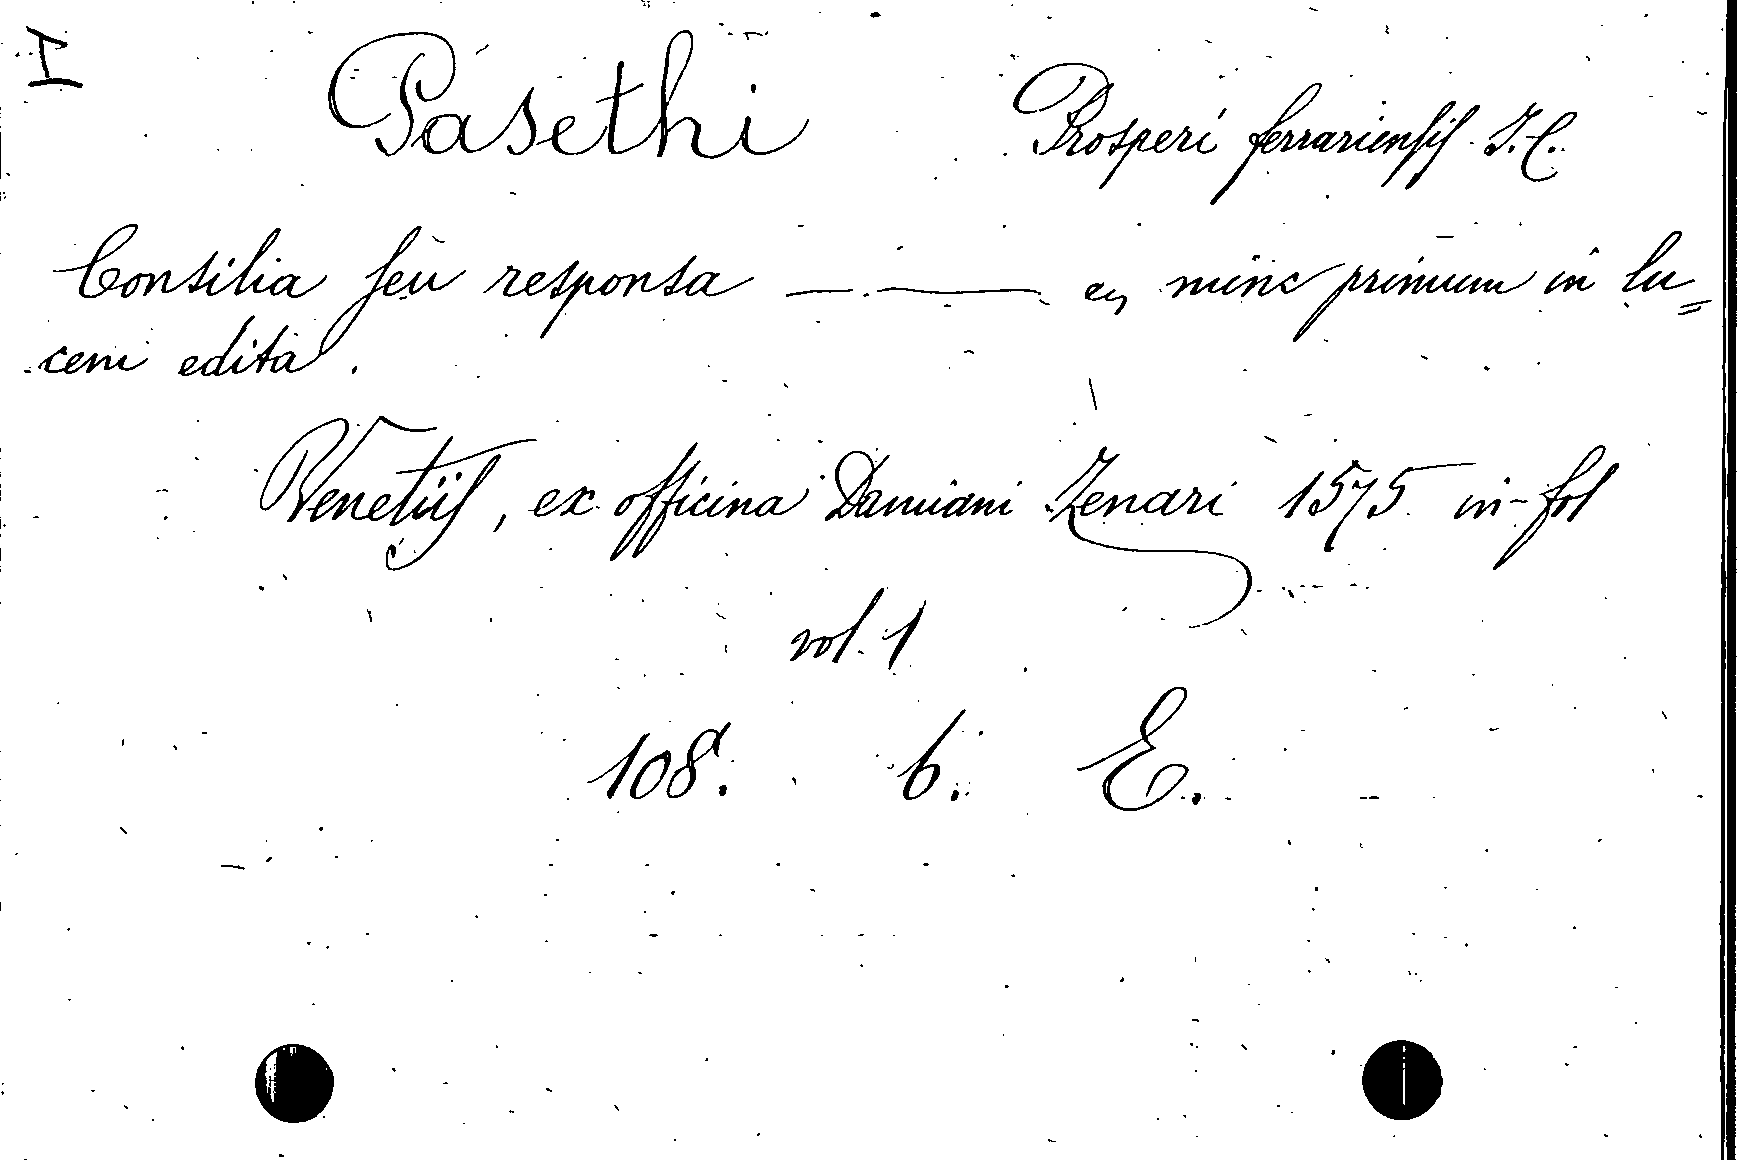 I
Pasethi Prosperi ferrariensis J. C.
Consilia seu responsa — — nunc primum in lu=
cem edita.
Venetiis, ex officina Damiani Zenari 1575 in-fol
vol. 1
108. 6. E.